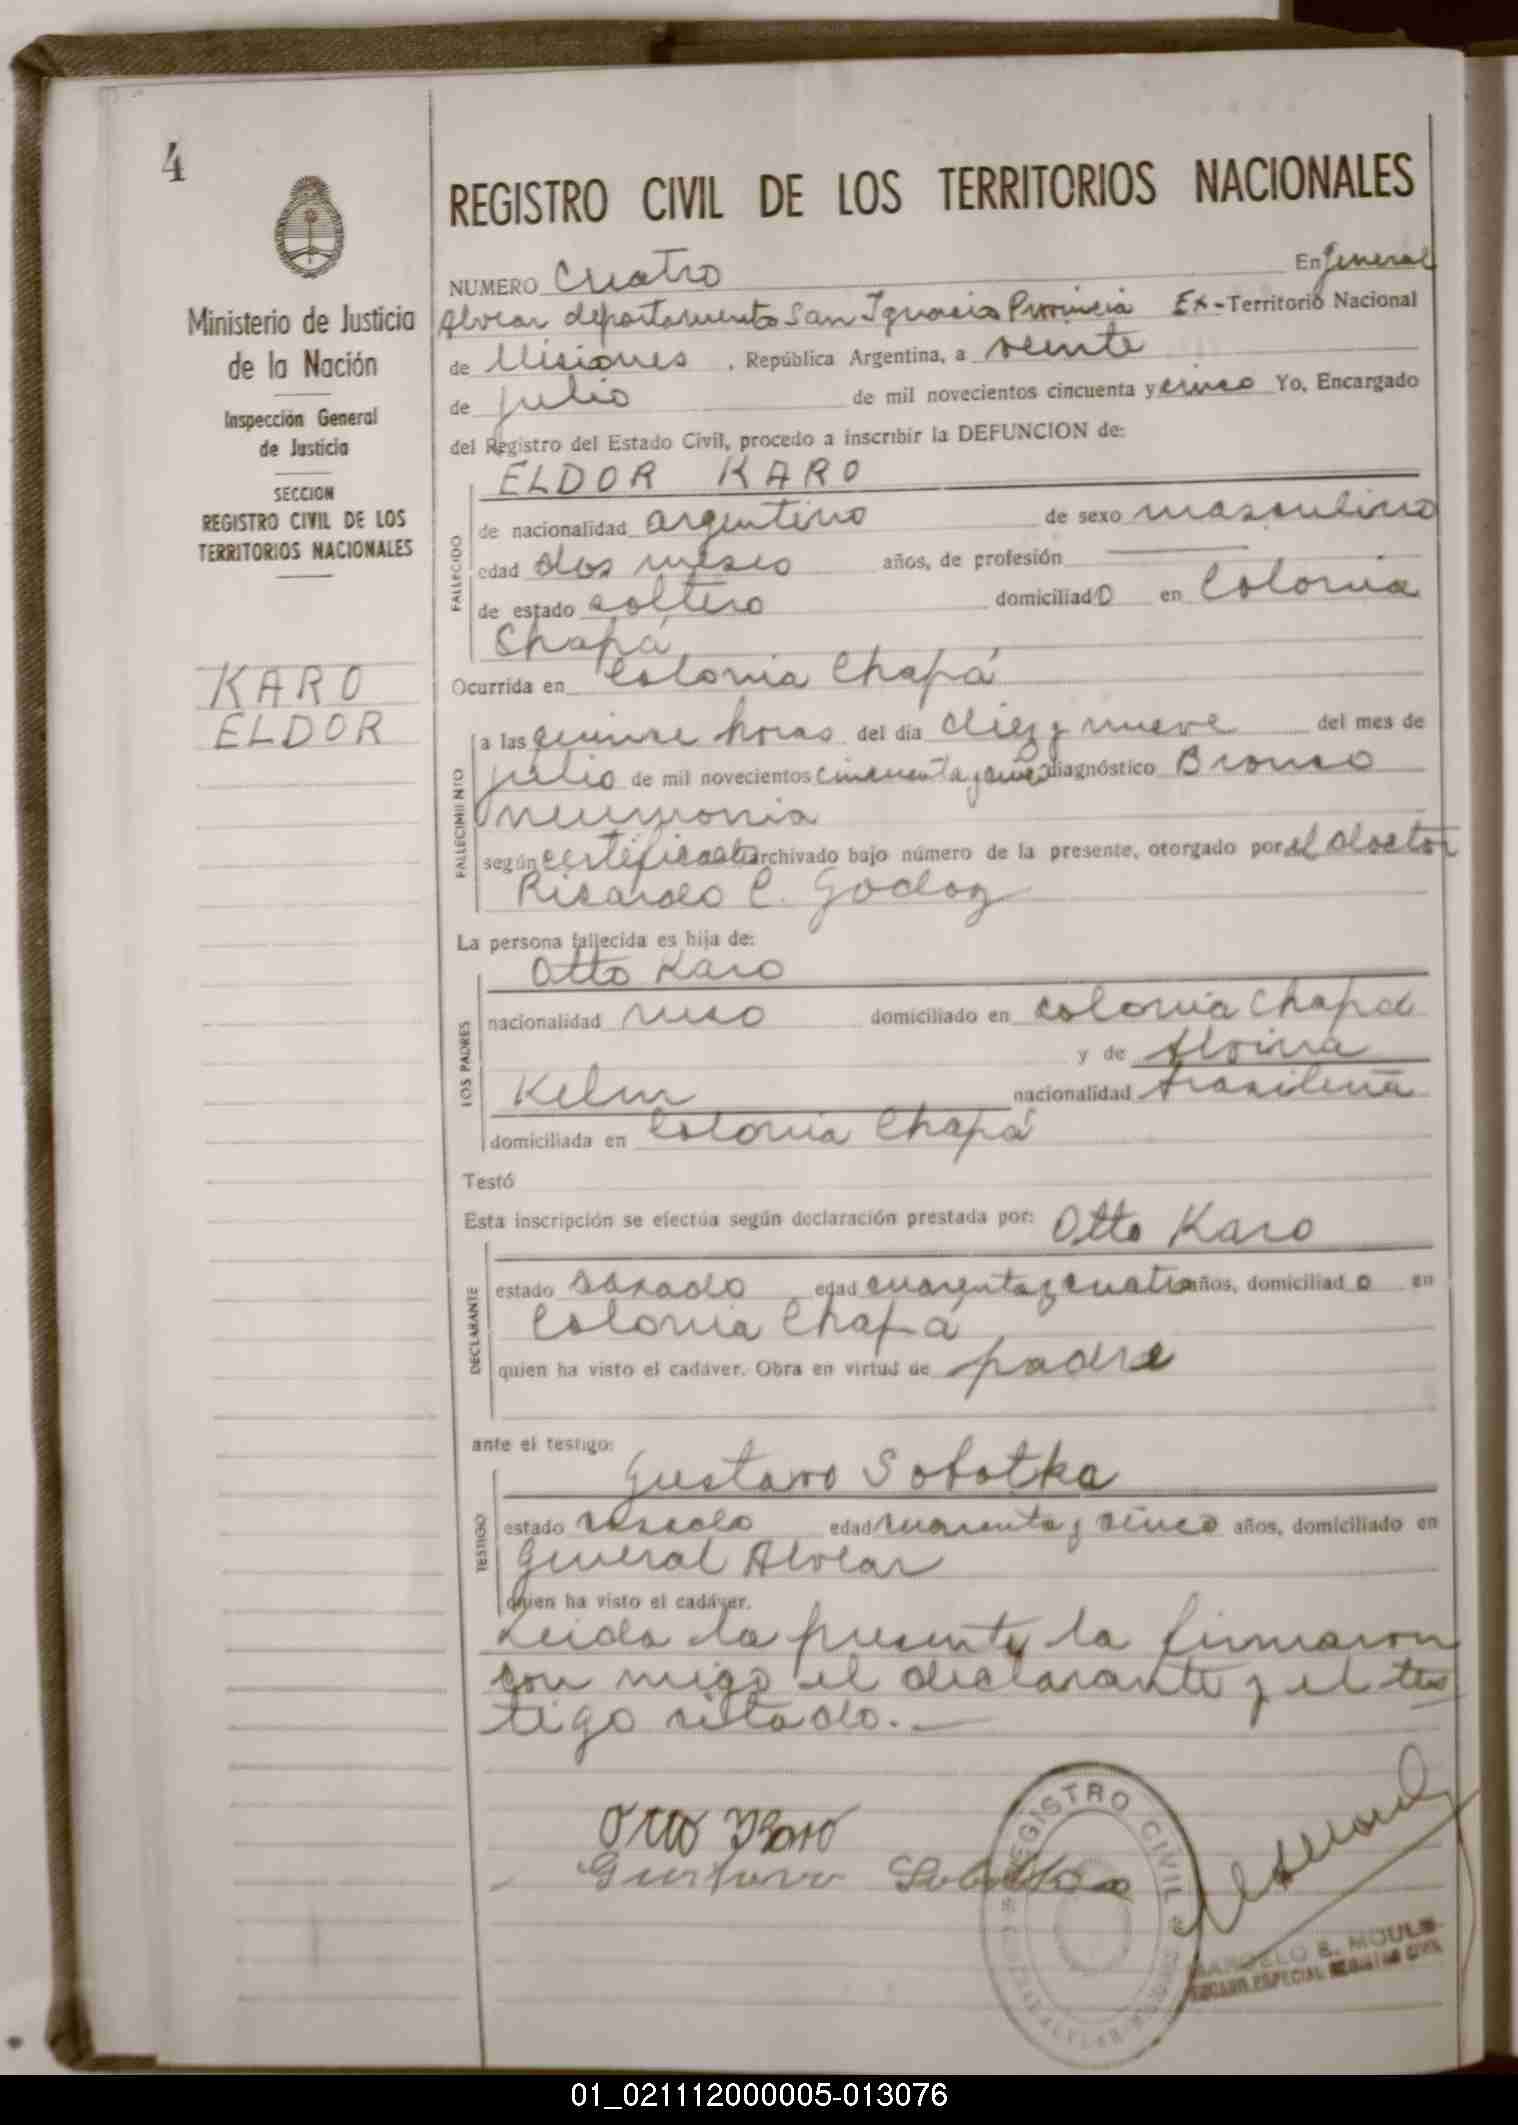 4
REGISTRO CIVIL DE LOS TERRITORIOS NACIONALES
Ministerio de Justicia
de la Nación
Inspección General
de Justicia
SECCION
REGISTRO CIVIL DE LOS
TERRITORIOS NACIONALES
KARO
ELDOR
NUMERO Cuatro En General
Alvear departamento San Ignacio Provincia Ex-Territorio Nacional
de Misiones, República Argentina, a veinte
de julio de mil novecientos cincuenta y cinco Yo, Encargado
del Registro del Estado Civil, procedo a inscribir la DEFUNCION de:
ELDOR KARO
FALLECIDO
de nacionalidad argentino de sexo masculino
edad dos meses años, de profesión
de estado soltero domiciliado en Colonia
Chapá
Ocurrida en Colonia Chapá
FALLECIMIENTO
a las quince horas del día diez y nueve del mes de
julio de mil novecientos cincuenta y cinco diagnóstico Bronco
neumonia
según certificado archivado bajo número de la presente, otorgado por el doctor
Ricardo C. Godoy
La persona fallecida es hija de:
Otto Karo
LOS PADRES
nacionalidad ruso domiciliado en colonia Chapá
y de Alvina
Kelm nacionalidad brasileña
domiciliada en Colonia Chapá
Testó
Esta inscripción se efectúa según declaración prestada por: Otto Karo
DECLARANTE
estado casado edad cuarenta y cuatro años, domiciliado en
Colonia Chapá
quien ha visto el cadáver. Obra en virtud de padre
ante el testigo:
Gustavo Sobotka
TESTIGO
estado casado edad cuarenta y cinco años, domiciliado en
General Alvear
quien ha visto el cadáver.
Leida la presente, la firmaron
con migo el declarante y el tes
tigo citado.-
Otto Karo
Gustavo Sobotka
REGISTRO CIVIL
MARCELO E. MOULS
ESPECIAL REGISTRO CIVIL
01_021112000005-013076